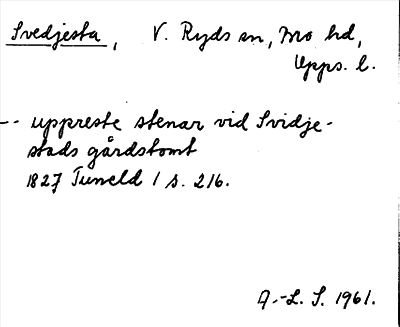 Svedjesta, V. Ryds sn, Bro hd,
Upps. l.
-- uppreste stenar vid Svidje-
stads gårdstomt
1827 Tuneld 1 s. 216.
A.-L. S. 1961.